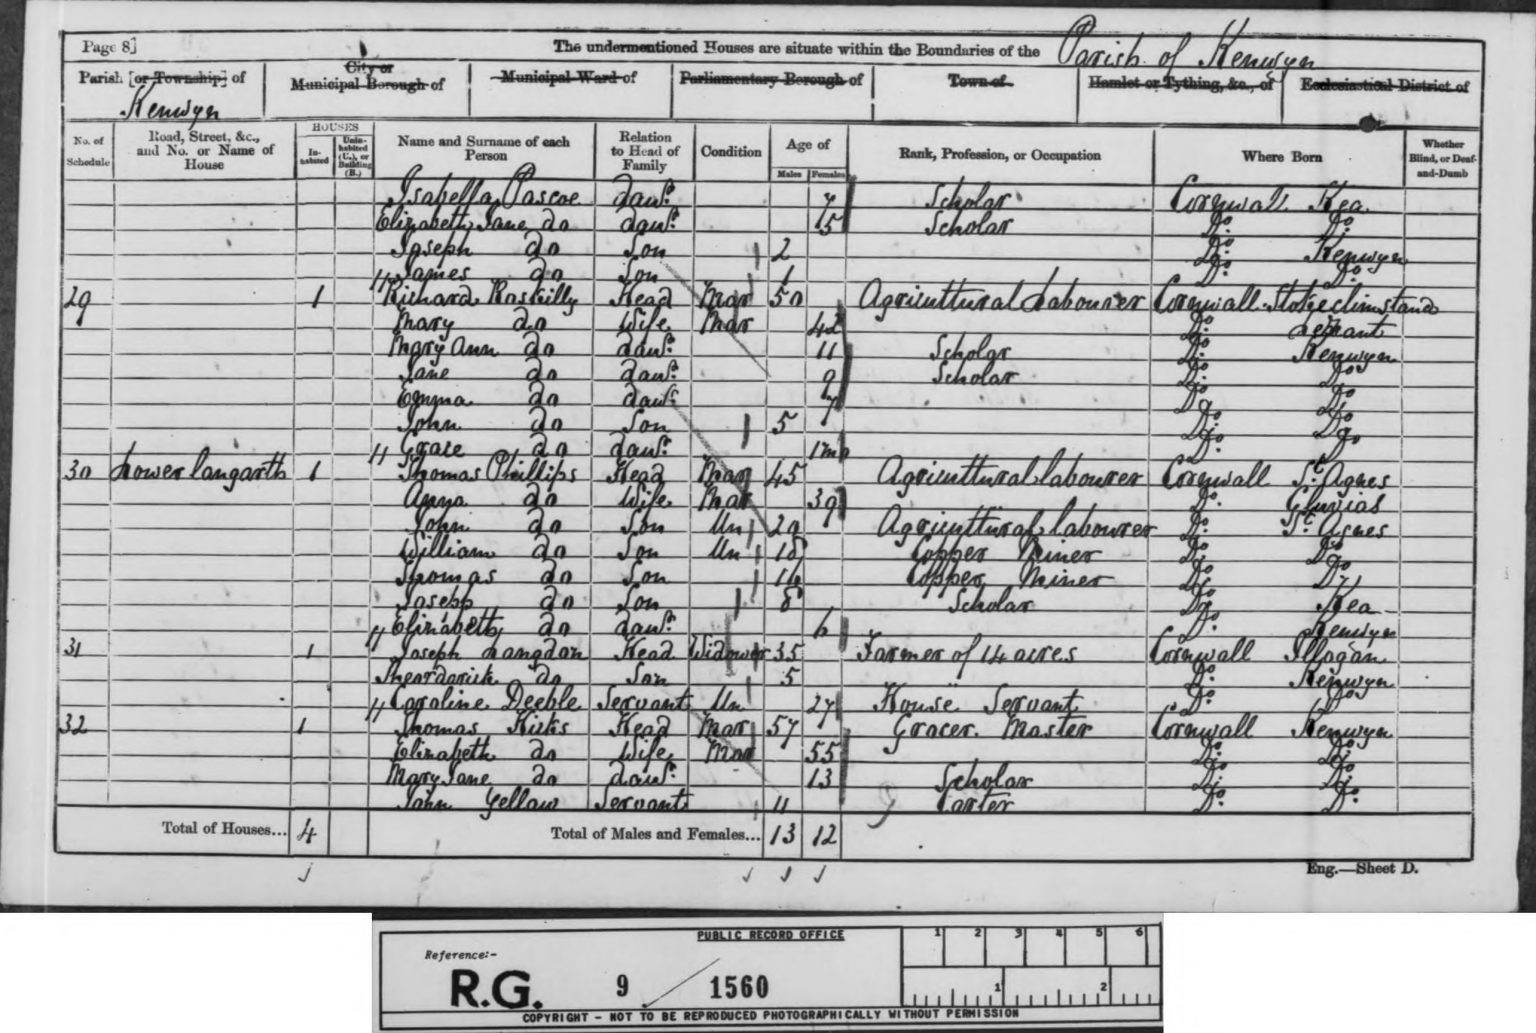 Page 8]
The undermentioned Houses are situate within the Boundaries of the Parish of Kenwyn
Parish [or Township] of Kenwyn
City or Municipal Borough of
Municipal Ward of
Parliamentary Borough of
Town of
Hamlet or Tything, &c., of
Ecclesiastical District of
No. of Schedule
Road, Street, &c., and No. or Name of House
HOUSES
Inhabited
Uninhabited (U.), or Building (B.)
Name and Surname of each Person
Relation to Head of Family
Condition
Age of
Males
Females
Rank, Profession, or Occupation
Where Born
Whether Blind, or Deaf-and-Dumb
Isabella Pascoe daur. 7 Scholar Cornwall Kea
Elizabeth Jane do daur. 5 Scholar Do. Do.
Joseph do Son 2 Do. Kenwyn
James do Son 1 Do. Do.
29 1 Richard Roskilly Head Mar 50 Agricultural Labourer Cornwall Stokeclimsland
Mary do Wife Mar 42 Do.
Mary Ann do daur. 11 Scholar Do. Kenwyn
Jane do daur. 9 Scholar Do. Do.
Emma do daur. 7 Do. Do.
John do Son 5 Do. Do.
Grace do daur. 1m Do. Do.
30 Lower langarth 1 Thomas Phillips Head Mar 45 Agricultural labourer Cornwall St. Agnes
Anna do Wife Mar 39 Do. Gluvias
John do Son Un 20 Agricultural labourer Do. St. Agnes
William do Son Un 18 Copper Miner Do. Do.
Thomas do Son 16 Copper Miner Do. Do.
Joseph do Son 8 Scholar Do. Kea
Elizabeth do daur. 6 Do. Kenwyn
31 1 Joseph Langdon Head Widower 35 Farmer of 14 acres Cornwall Illogan
do Son 5 Do. Kenwyn
Caroline Deeble Servant Un 27 House Servant Do. Do.
32 1 Thomas Head Mar 57 Grocer. Master Cornwall Kenwyn
Elizabeth do Wife Mar 55 Do. Do.
Mary Jane do daur. 13 Scholar Do. Do.
John Yellow Servant 11 Carter Do. Do.
Total of Houses... 4 Total of Males and Females... 13 12
Eng.—Sheet D.
PUBLIC RECORD OFFICE
Reference:-
R.G. 9 / 1560
1 2 3 4 5 6
1 2
COPYRIGHT - NOT TO BE REPRODUCED PHOTOGRAPHICALLY WITHOUT PERMISSION